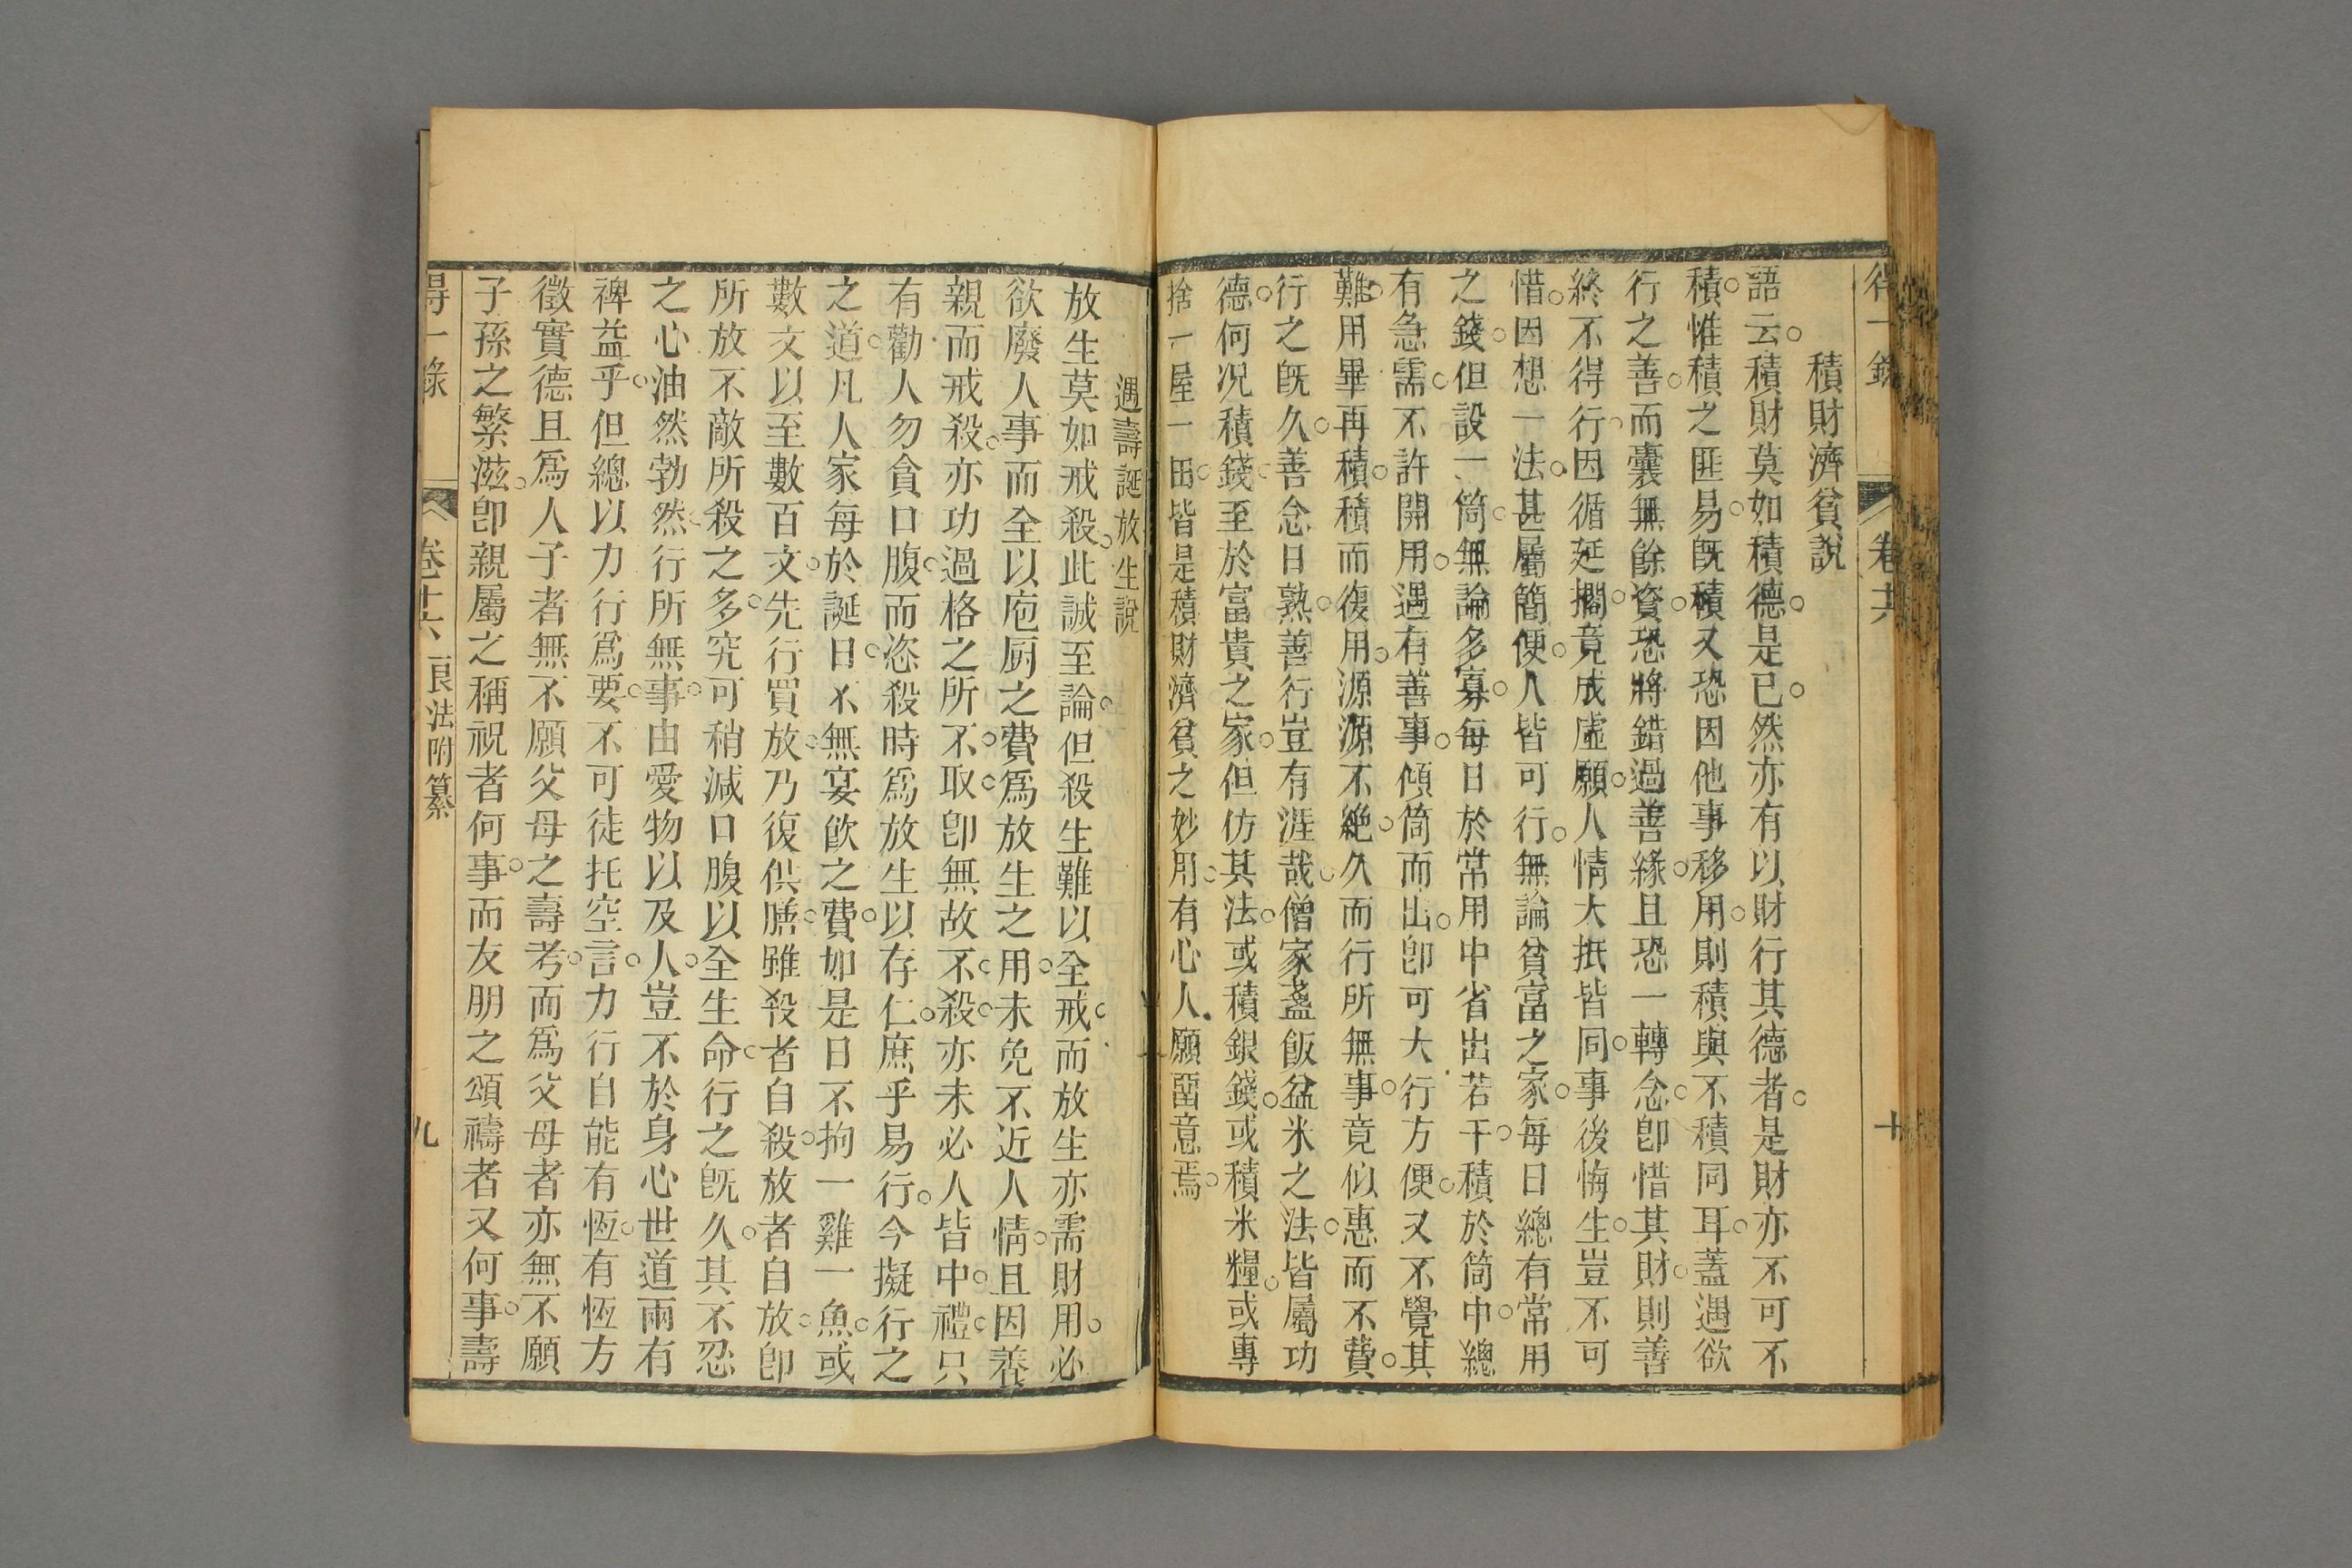 得一錄 卷十六 十
積財濟貧說
語云。積財莫如積德。是已。然亦有以財行其德者。是財亦不可不
積。惟積之匪易。旣積又恐因他事移用。則積與不積同耳。蓋遇欲
行之善。而囊無餘資。恐將錯過善緣。且恐一轉念。卽惜其財。則善
終不得行。因循延擱。竟成虛願。人情大抵皆同。事後悔生。豈不可
惜。因想一法。甚屬簡便。人皆可行。無論貧富之家。每日總有常用
之錢。但設一筒。無論多寡。每日於常用中省出若干。積於筒中。總
有急需。不許開用。遇有善事。傾筒而出。卽可大行方便。又不覺其
難。用畢再積。積而復用。源源不絕。久而行所無事。竟似惠而不費。
行之旣久。善念日熟。善行豈有涯哉。僧家盞飯盆米之法。皆屬功
德。何况積錢。至於富貴之家。但仿其法。或積銀錢。或積米糧。或專
捨一屋一田。皆是積財濟貧之妙用。有心人願畱意焉。
遇壽誕放生說
放生莫如戒殺。此誠至論。但殺生難以全戒。而放生亦需財用。必
欲廢人事而全以庖厨之費。爲放生之用。未免不近人情。且因養
親而戒殺。亦功過格之所不取。卽無故不殺。亦未必人皆中禮。只
有勸人勿貪口腹。而恣殺時爲放生以存仁。庶乎易行。今擬行之
之道。凡人家每於誕日。不無宴飲之費。如是日不拘一雞一魚。或
數文以至數百文。先行買放。乃復供膳。雖殺者自殺。放者自放。卽
所放不敵所殺之多。究可稍減口腹。以全生命。行之旣久。其不忍
之心。油然勃然。行所無事。由愛物以及人。豈不於身心世道兩有
裨益乎。但總以力行爲要。不可徒托空言。力行自能有恆。有恆方
徵實德。且爲人子者。無不願父母之壽考。而爲父母者。亦無不願
子孫之繁滋。卽親屬之稱祝者何事。而友朋之頌禱者又何事。壽
得一錄 卷十六 良法附纂 九